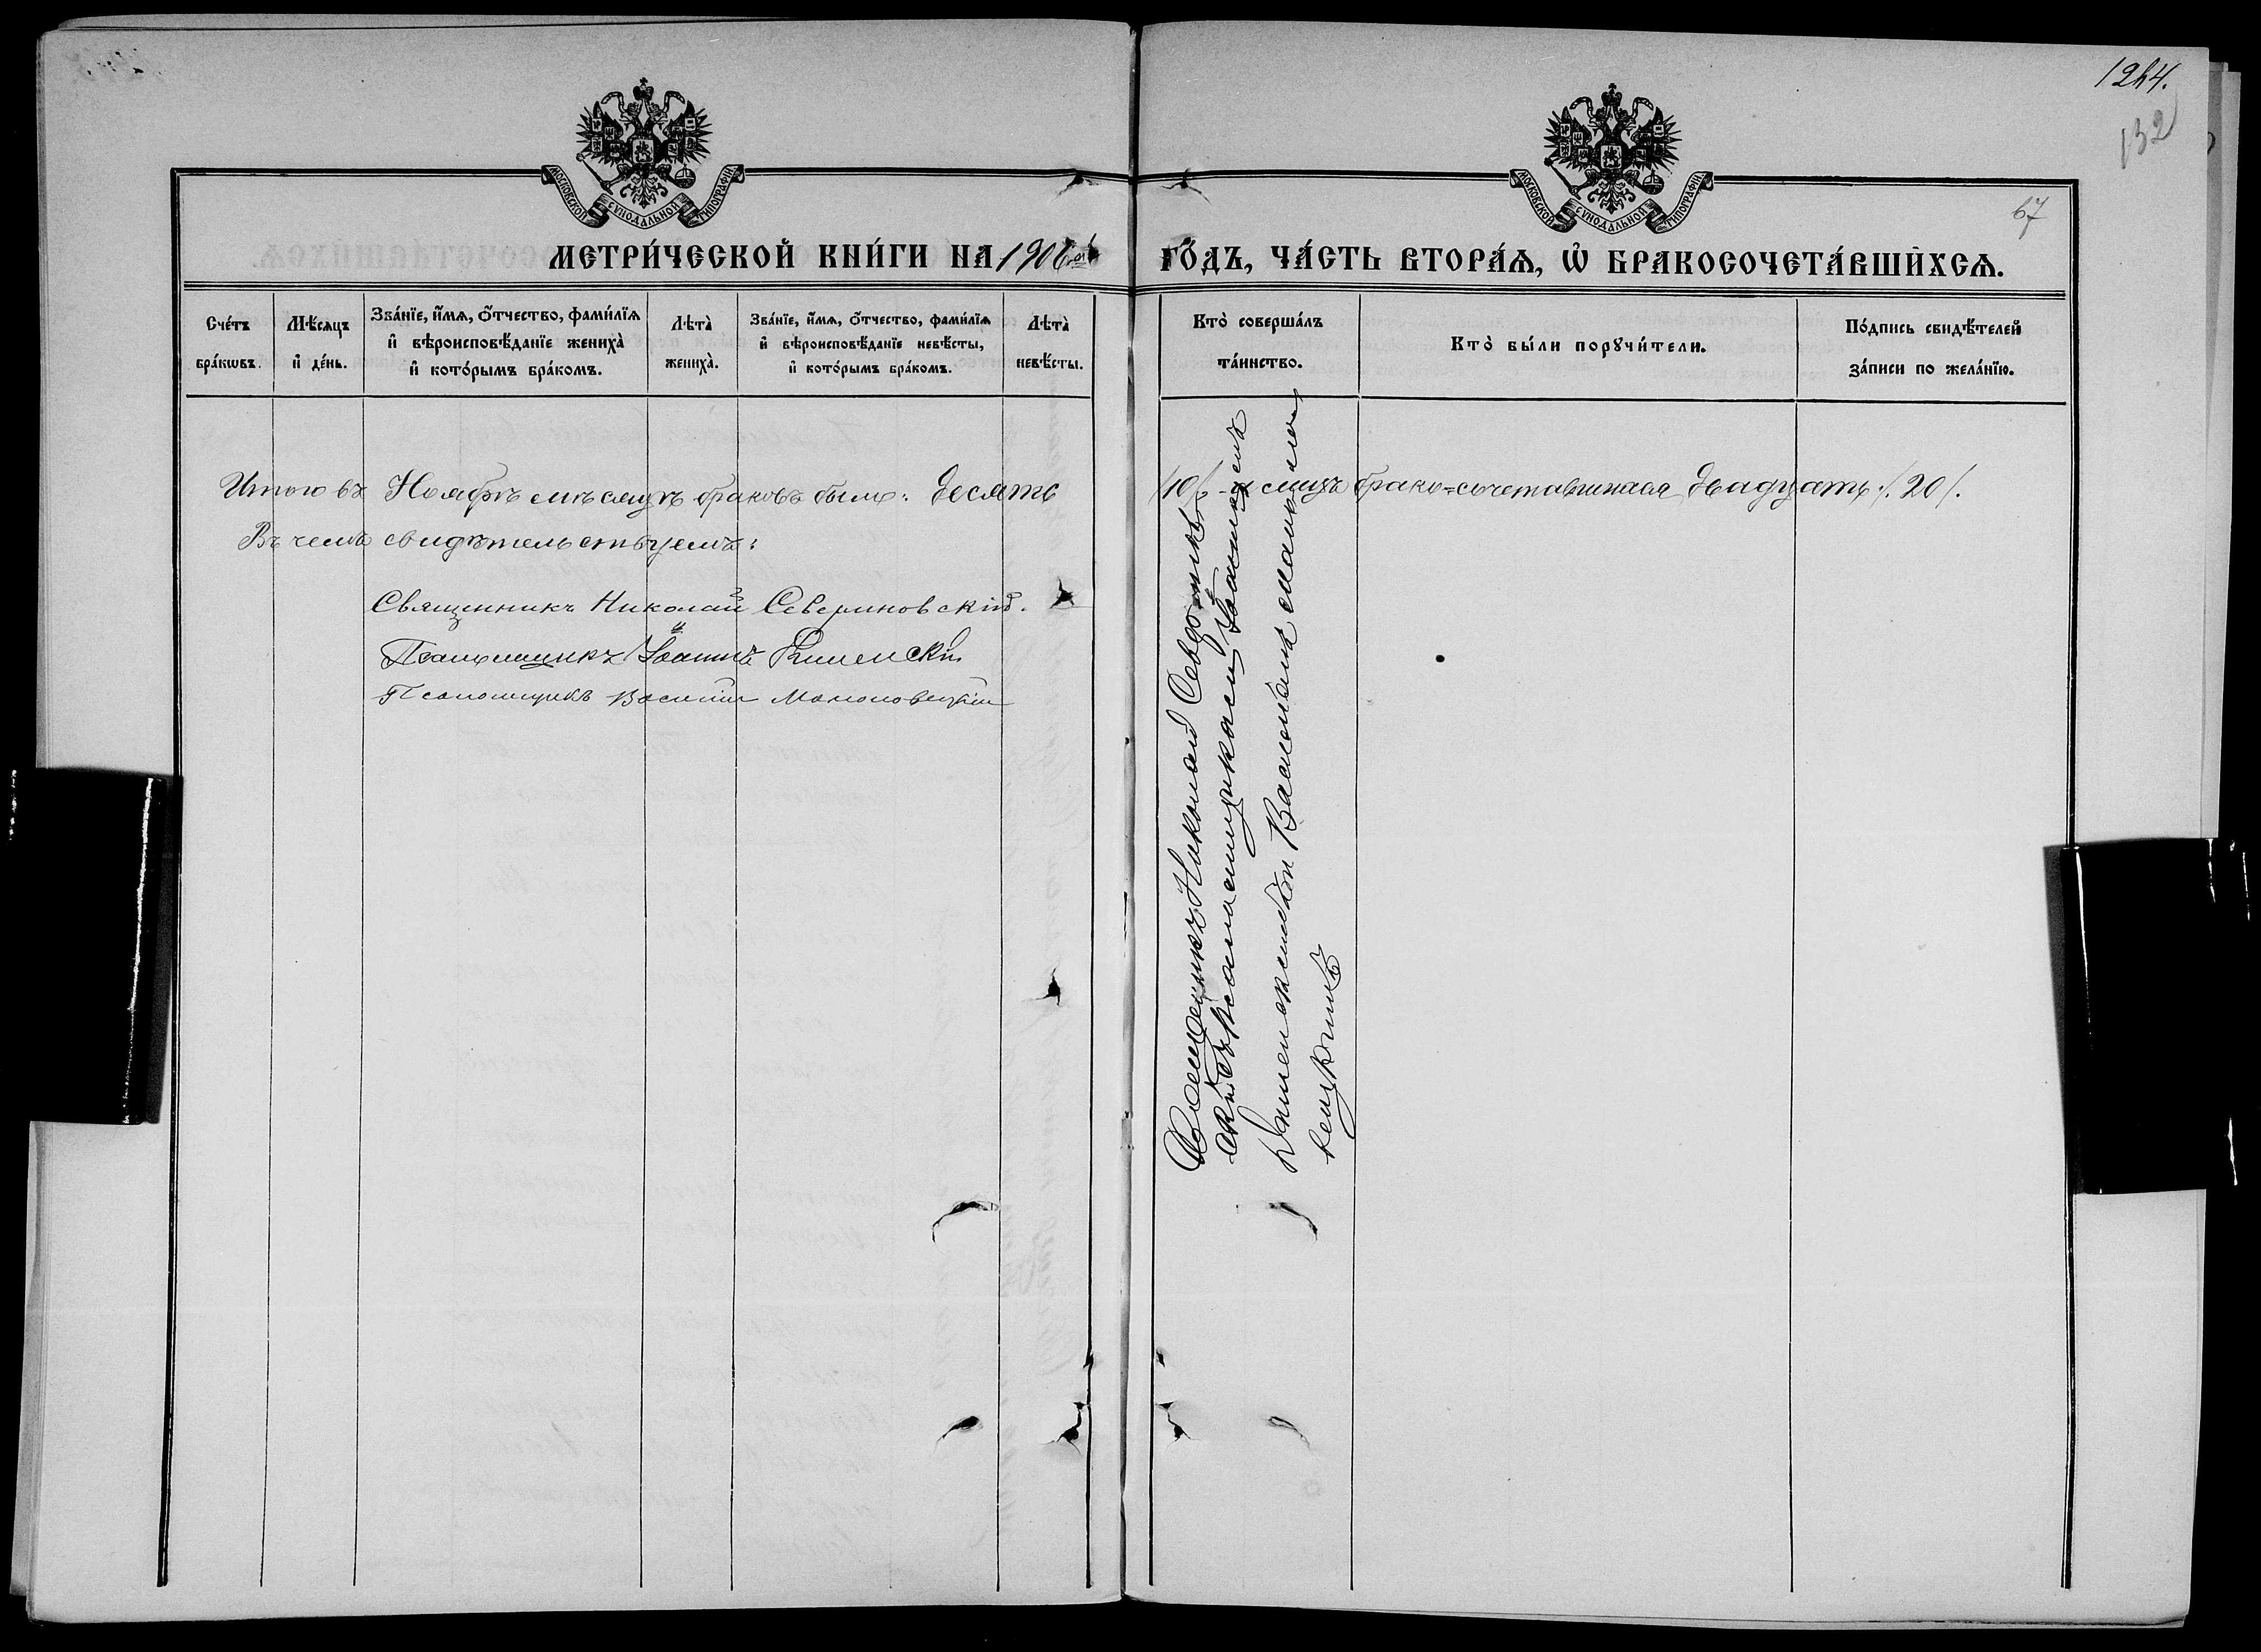 1244.
132
67
МОСКОВСКОЙ СѴНОДАЛЬНОЙ ТИПОГРАФІИ
МОСКОВСКОЙ СѴНОДАЛЬНОЙ ТИПОГРАФІИ
МЕТРИ́ЧЕСКОЙ КНИ́ГИ НА 1906 ГО́ДЪ, ЧА́СТЬ ВТОРА́Ѧ, Ѽ БРАКОСОЧЕТА́ВШИХСѦ.
Сче́тъ бра́кѡвъ.
Мѣ́сѧцъ и҆ де́нь.
Зва́нїе, и҆́мѧ, ѻ҆́тчество, фами́лїѧ и҆ вѣроисповѣ́данїе жениха̀ и҆ кото́рымъ бра́комъ.
Лѣта̀ жениха̀.
Зва́нїе, и҆́мѧ, ѻ҆́тчество, фами́лїѧ и҆ вѣроисповѣ́данїе невѣ́сты, и҆ кото́рымъ бра́комъ.
Лѣта̀ невѣ́сты.
Кто̀ соверша́лъ та́инство.
Кто̀ бы́ли порꙋчи́тели.
По́дпись свидѣ́телей за́писи по жела́нїю.
Итого въ Ноябрѣ мѣсяцѣ браковъ было: десять /10/ – а лицъ брако=сочетавшихся двадцать. /20/.
Въ чемъ свидѣтельствуемъ:
Священникъ Николай Севериновскій.
Псаломщикъ Іоаннъ
Псаломщикъ Василій
Священникъ Николай
съ псаломщиками Іоанномъ
и Василіемъ